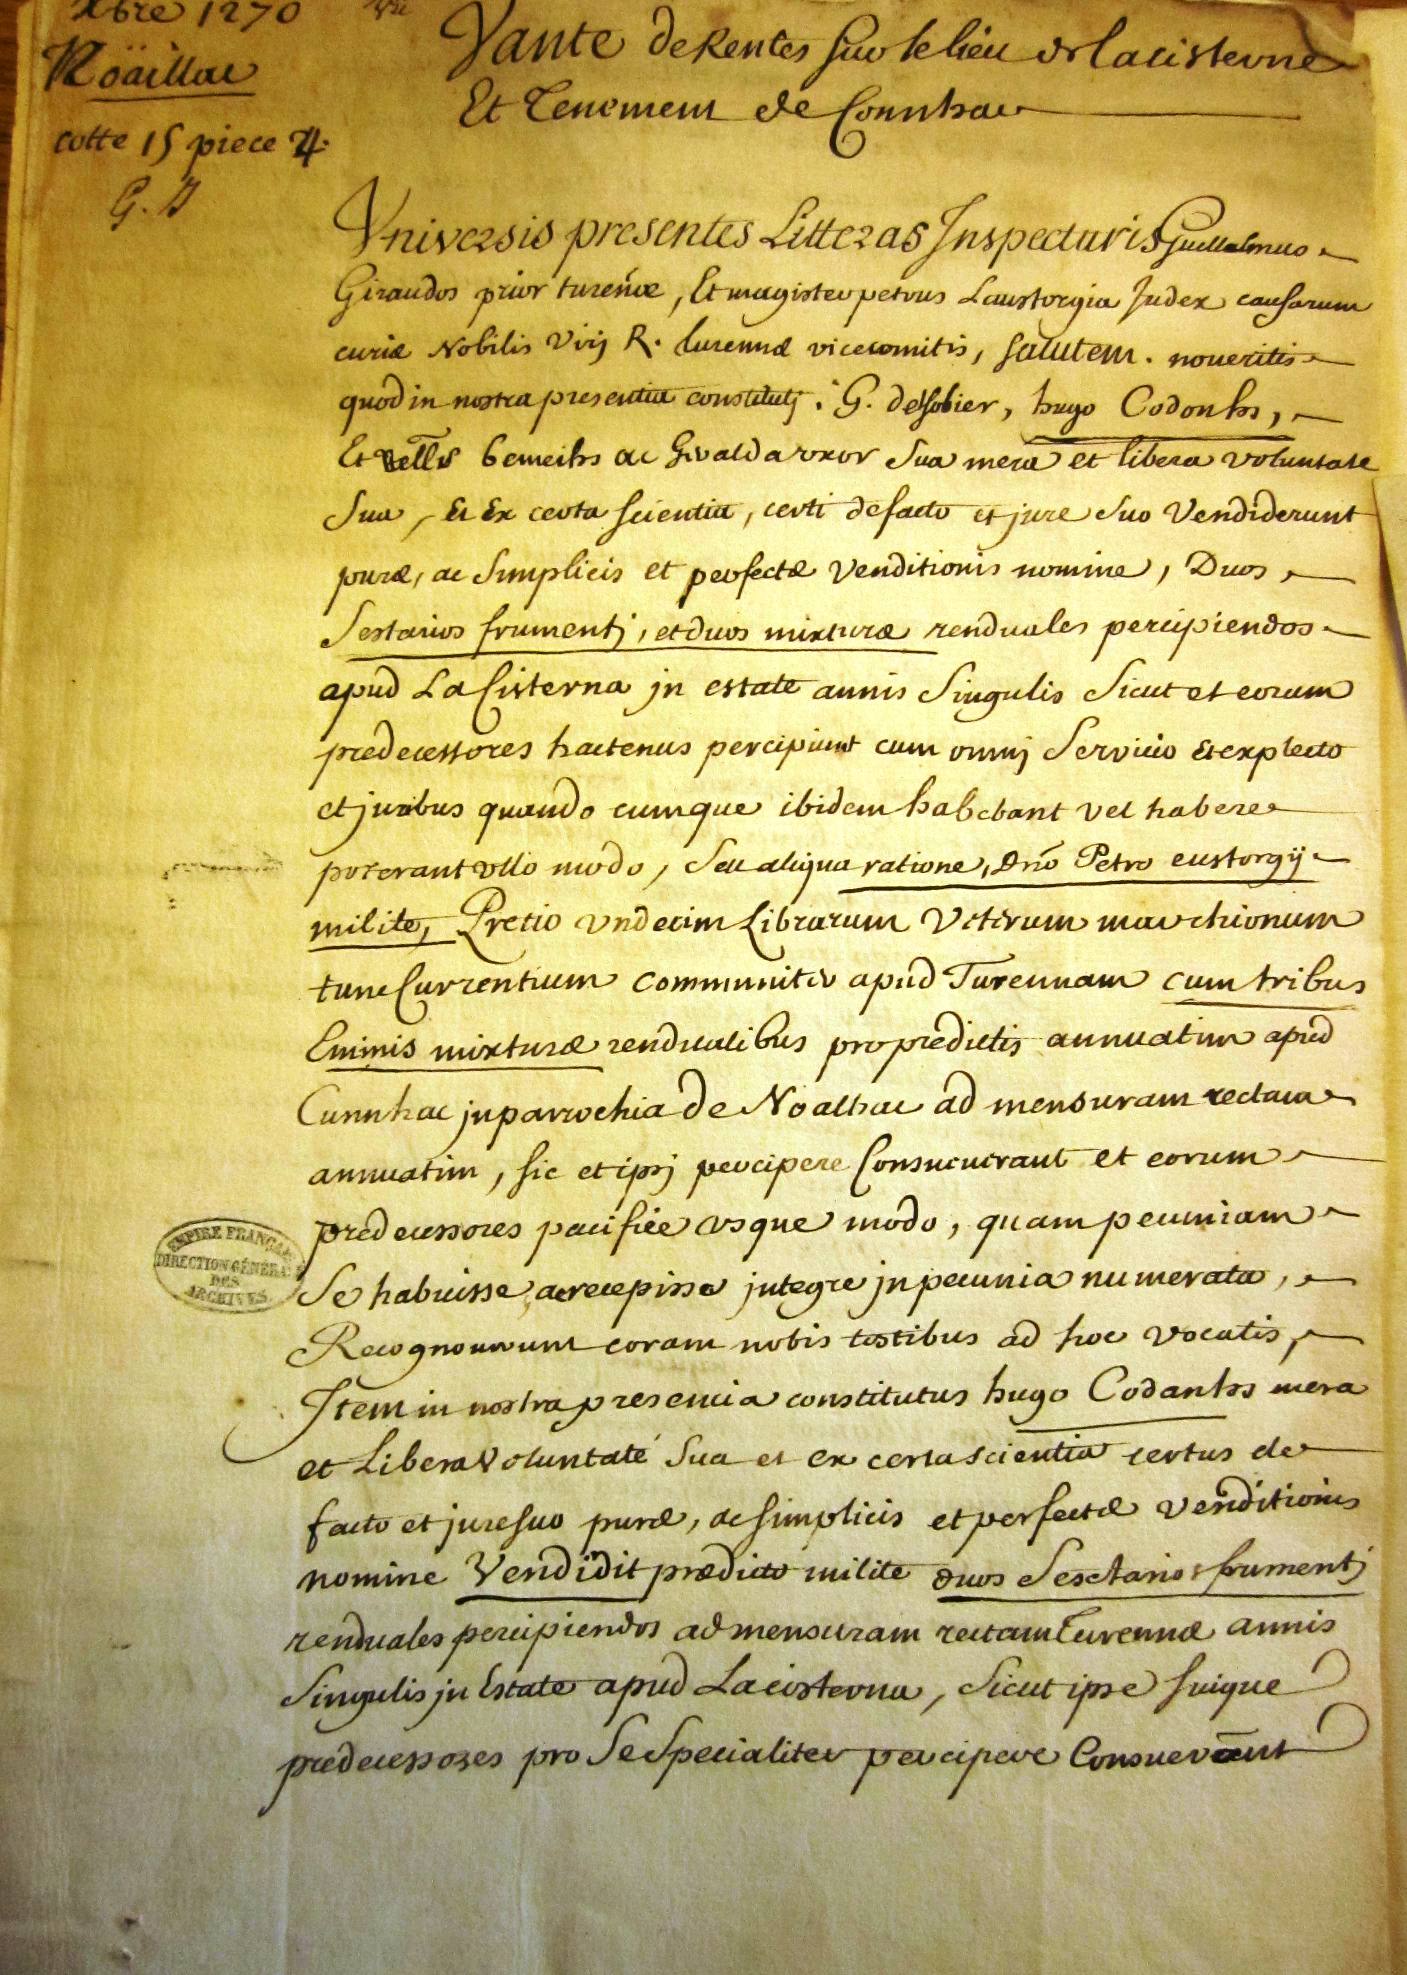 xbre 1270
Vu
Noäillac
cotte 15 piece 24.
G. D
Vante de Rentes sur le lieu de lacisterne
Et Tenement de Connhac
Vniversis presentes Litteras Inspecturis Guillelmus
Giraudos prior turenæ, Et magister petrus Laustorgia Judex causarum
curiæ Nobilis Virj R. turennæ vicecomitis, salutem. noveritis
quod in nostra presentia constitutj. G. delsobier, hugo Codonhs,
Et bemeihs ac Giralda vxor Sua mera et libera voluntate
Sua, Et Ex certa scientia, certi de facto et jure Suo Vendiderunt
puræ, ac Simplicis et perfectæ Venditionis nomine, Duos
Sestarios frumentj, et duos mixturæ renduales percipiendos
apud La Cisterna jn estate annis Singulis Sicut et eorum
predecessores hactenus percipiunt cum omnj Servicio et explecto
et juribus quando cumque ibidem habebant vel habere
poterant vllo modo, Seu aliqua ratione, Dno Petro eustorgij
milite, Pretio vndecim Librarum Veterum marchionum
tunc Currentium communiter apud Turennam cum tribus
Eminis mixturæ rendualibus pro predictis annuatim apud
Cunnhac jn parrochia de Noalhac ad mensuram rectam
annuatim, sic et ipsj percipere Consueuerant et eorum
predecessores pacifice vsque modo, quam pecuniam
Se habuisse ac recepisse jntegre jn pecunia numerata,
Recognouerunt coram nobis testibus ad hoc vocatis,
Item in nostra presencia constitutus hugo Codanhs mera
et Libera voluntate Sua et ex certa scientia certus de
facto et jure suo puræ, ac simplicis et perfectæ venditionis
nomine Vendidit prædicto milite duos Sesctarios frumentj
renduales percipiendos ad mensuram rectam Turennæ annis
Singulis jn Estate apud Lacisterna, Sicut ipse suique
predecessores pro Se Specialiter percipere Consueverant
EMPIRE FRANÇAIS
DIRECTION GÉNÉRALE
DES
ARCHIVES